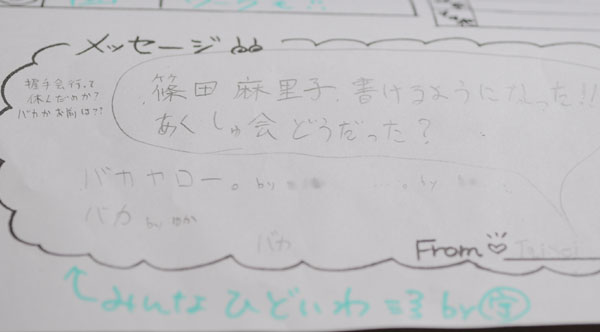 メッセージ
握手会行って
休んだのか?
バカかお前は??
篠田 麻里子 書けるようになった!!
あくしゅ会 どうだった?
バカヤロー。by
by
バカ by ゆか
バカ
From
みんな ひどいわ by